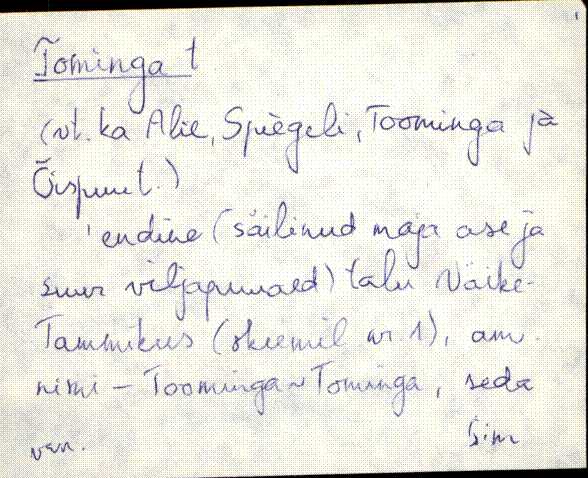 Tominga t
(vt. ka Alie, Spiegeli, Toominga ja
Õispuut.)
'endine (säilinud maja ase ja
suur viljapuuaed) talu Väike-
Tammikus (skeemil nr. 1), am.
nimi – Toominga ~ Tominga, seda
van. Sim